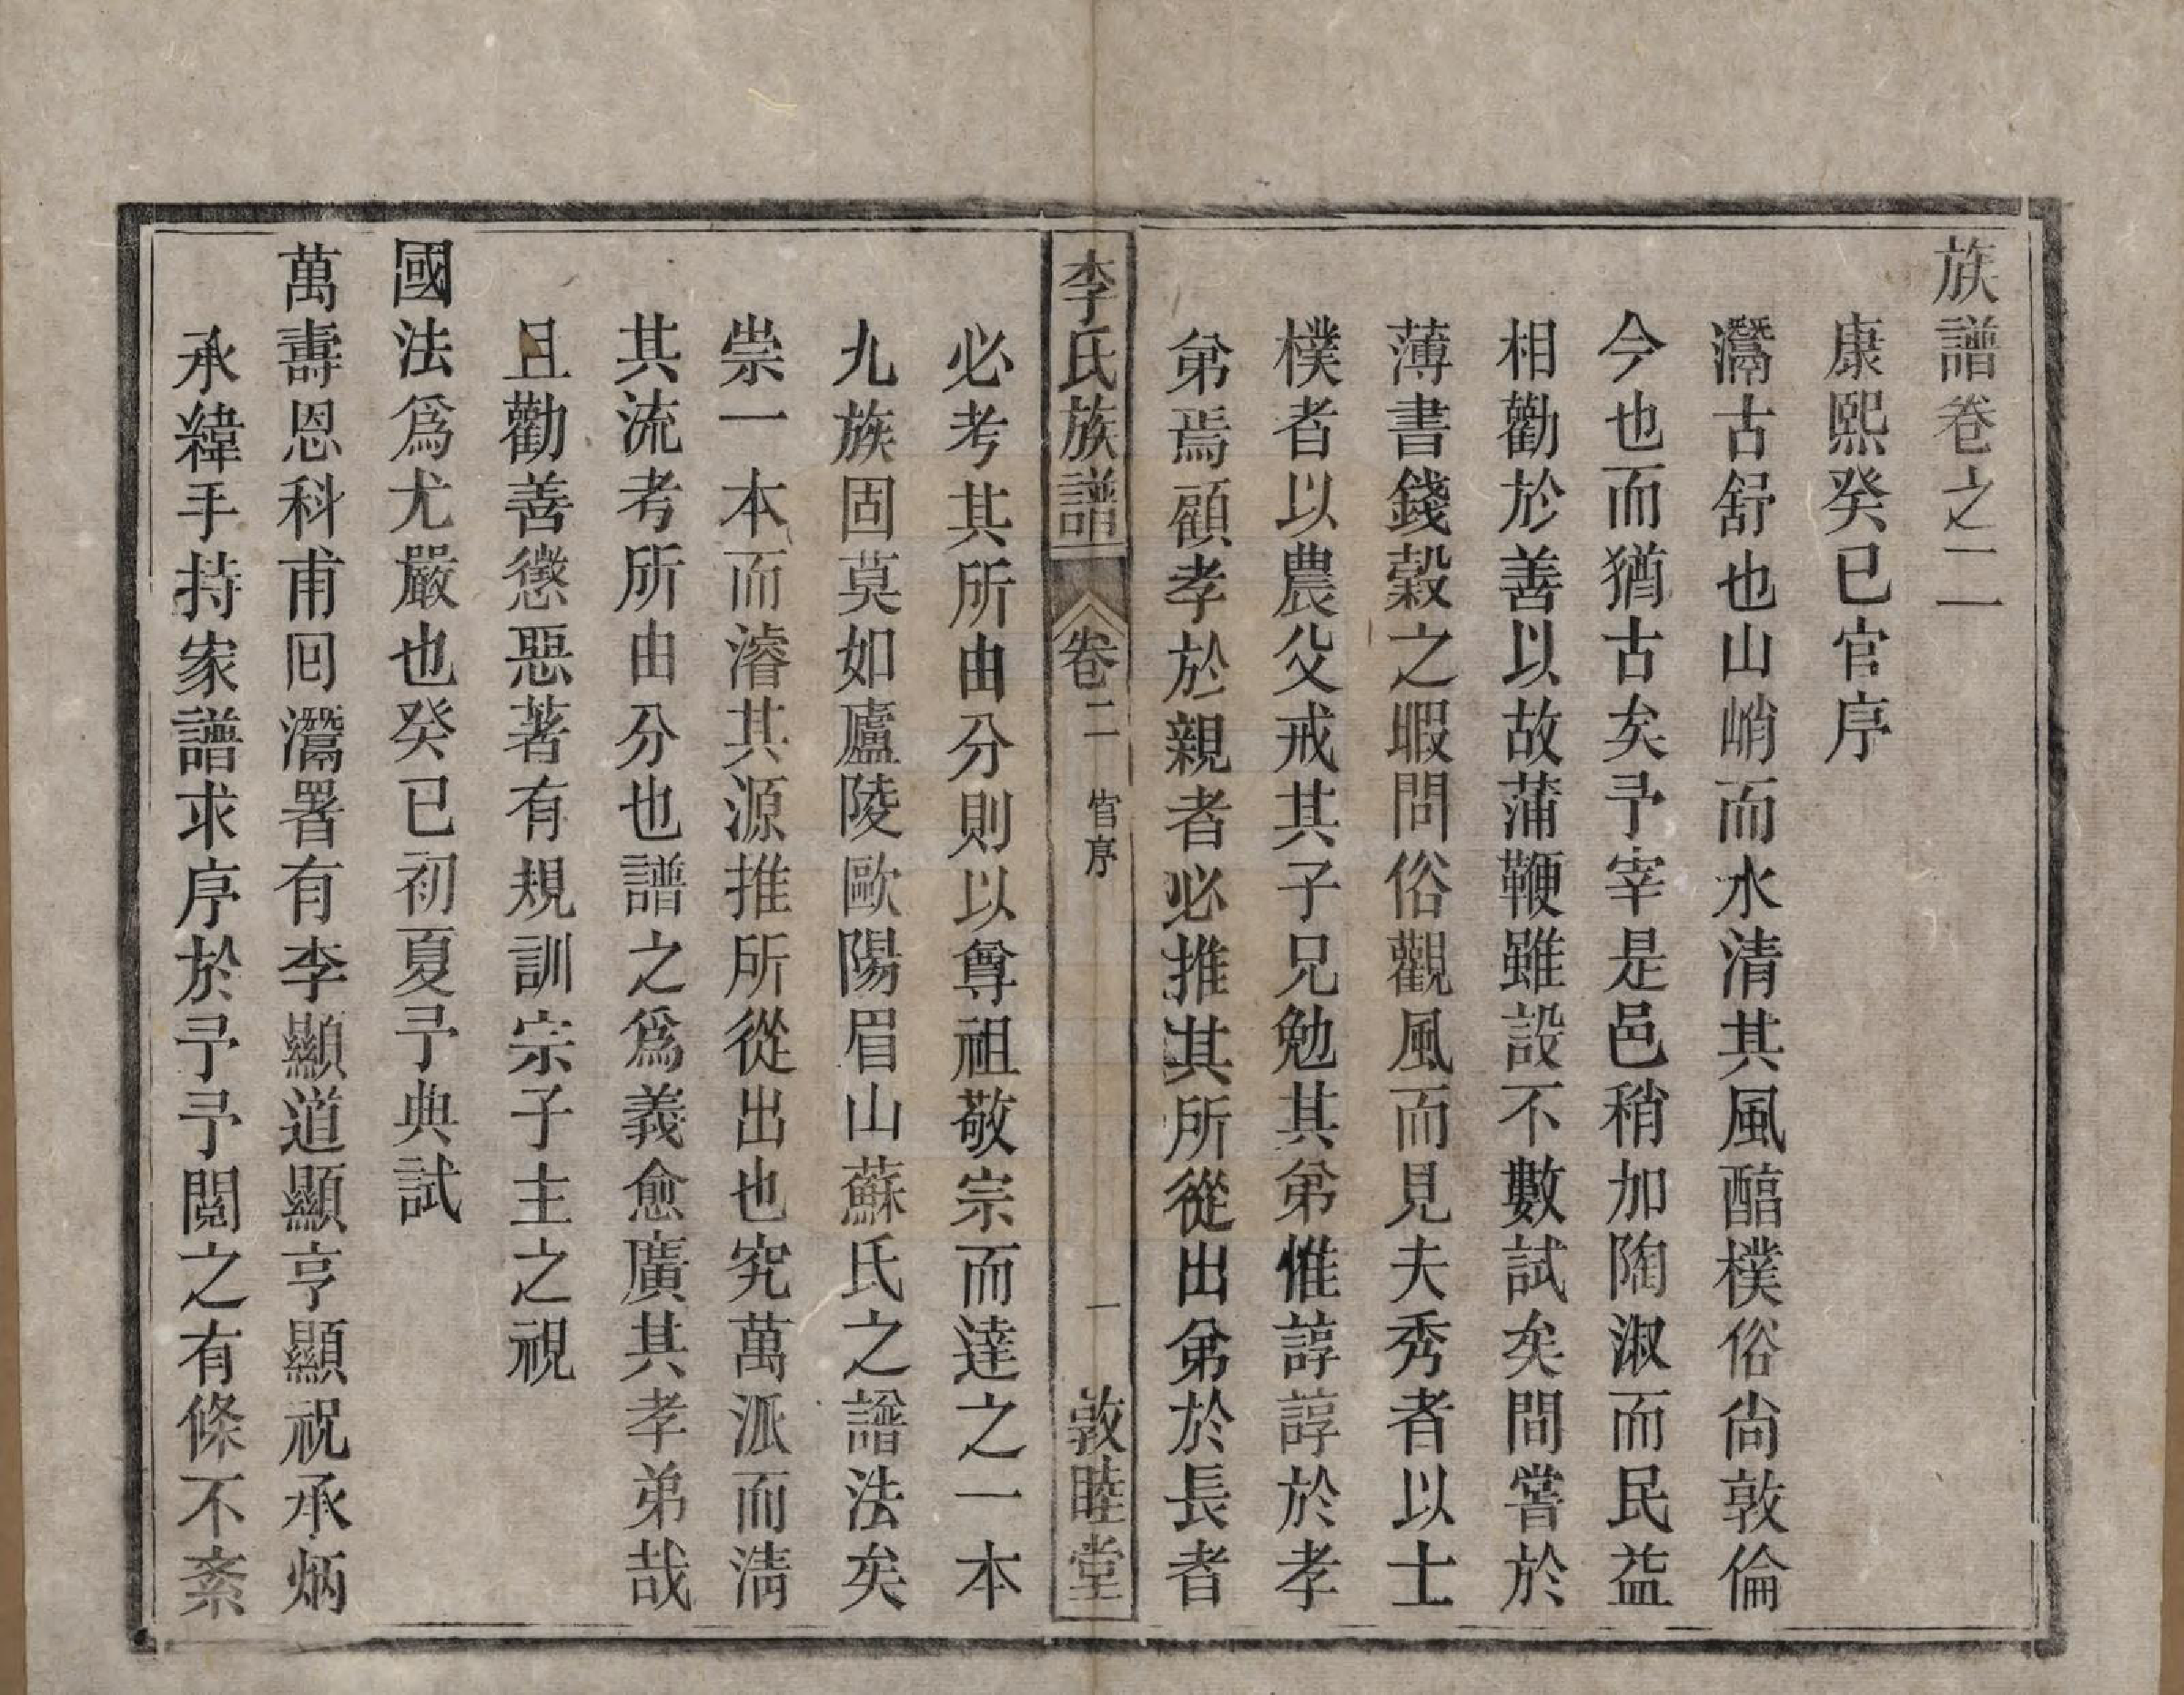 族譜卷之二
康熙癸巳官序
灊古舒也山峭而水清其風醕樸俗尚敦倫
今也而猶古矣予宰是邑稍加陶淑而民益
相勸於善以故蒲鞭雖設不數試矣間嘗於
薄書錢穀之暇問俗觀風而見夫秀者以士
樸者以農父戒其子兄勉其弟惟諄諄於孝
弟焉顧孝於親者必推其所從出弟於長者
李氏族譜 卷二 官序 一 敦睦堂
必考其所由分則以尊祖敬宗而達之一本
九族固莫如廬陵歐陽眉山蘇氏之譜法矣
崇一本而濬其源推所從出也究萬派而淸
其流考所由分也譜之爲義愈廣其孝弟哉
且勸善懲惡著有規訓宗子主之視
國法爲尤嚴也癸巳初夏予典試
萬壽恩科甫囘灊署有李顯道顯亨顯祝承炳
承緯手持家譜求序於予予閲之有條不紊